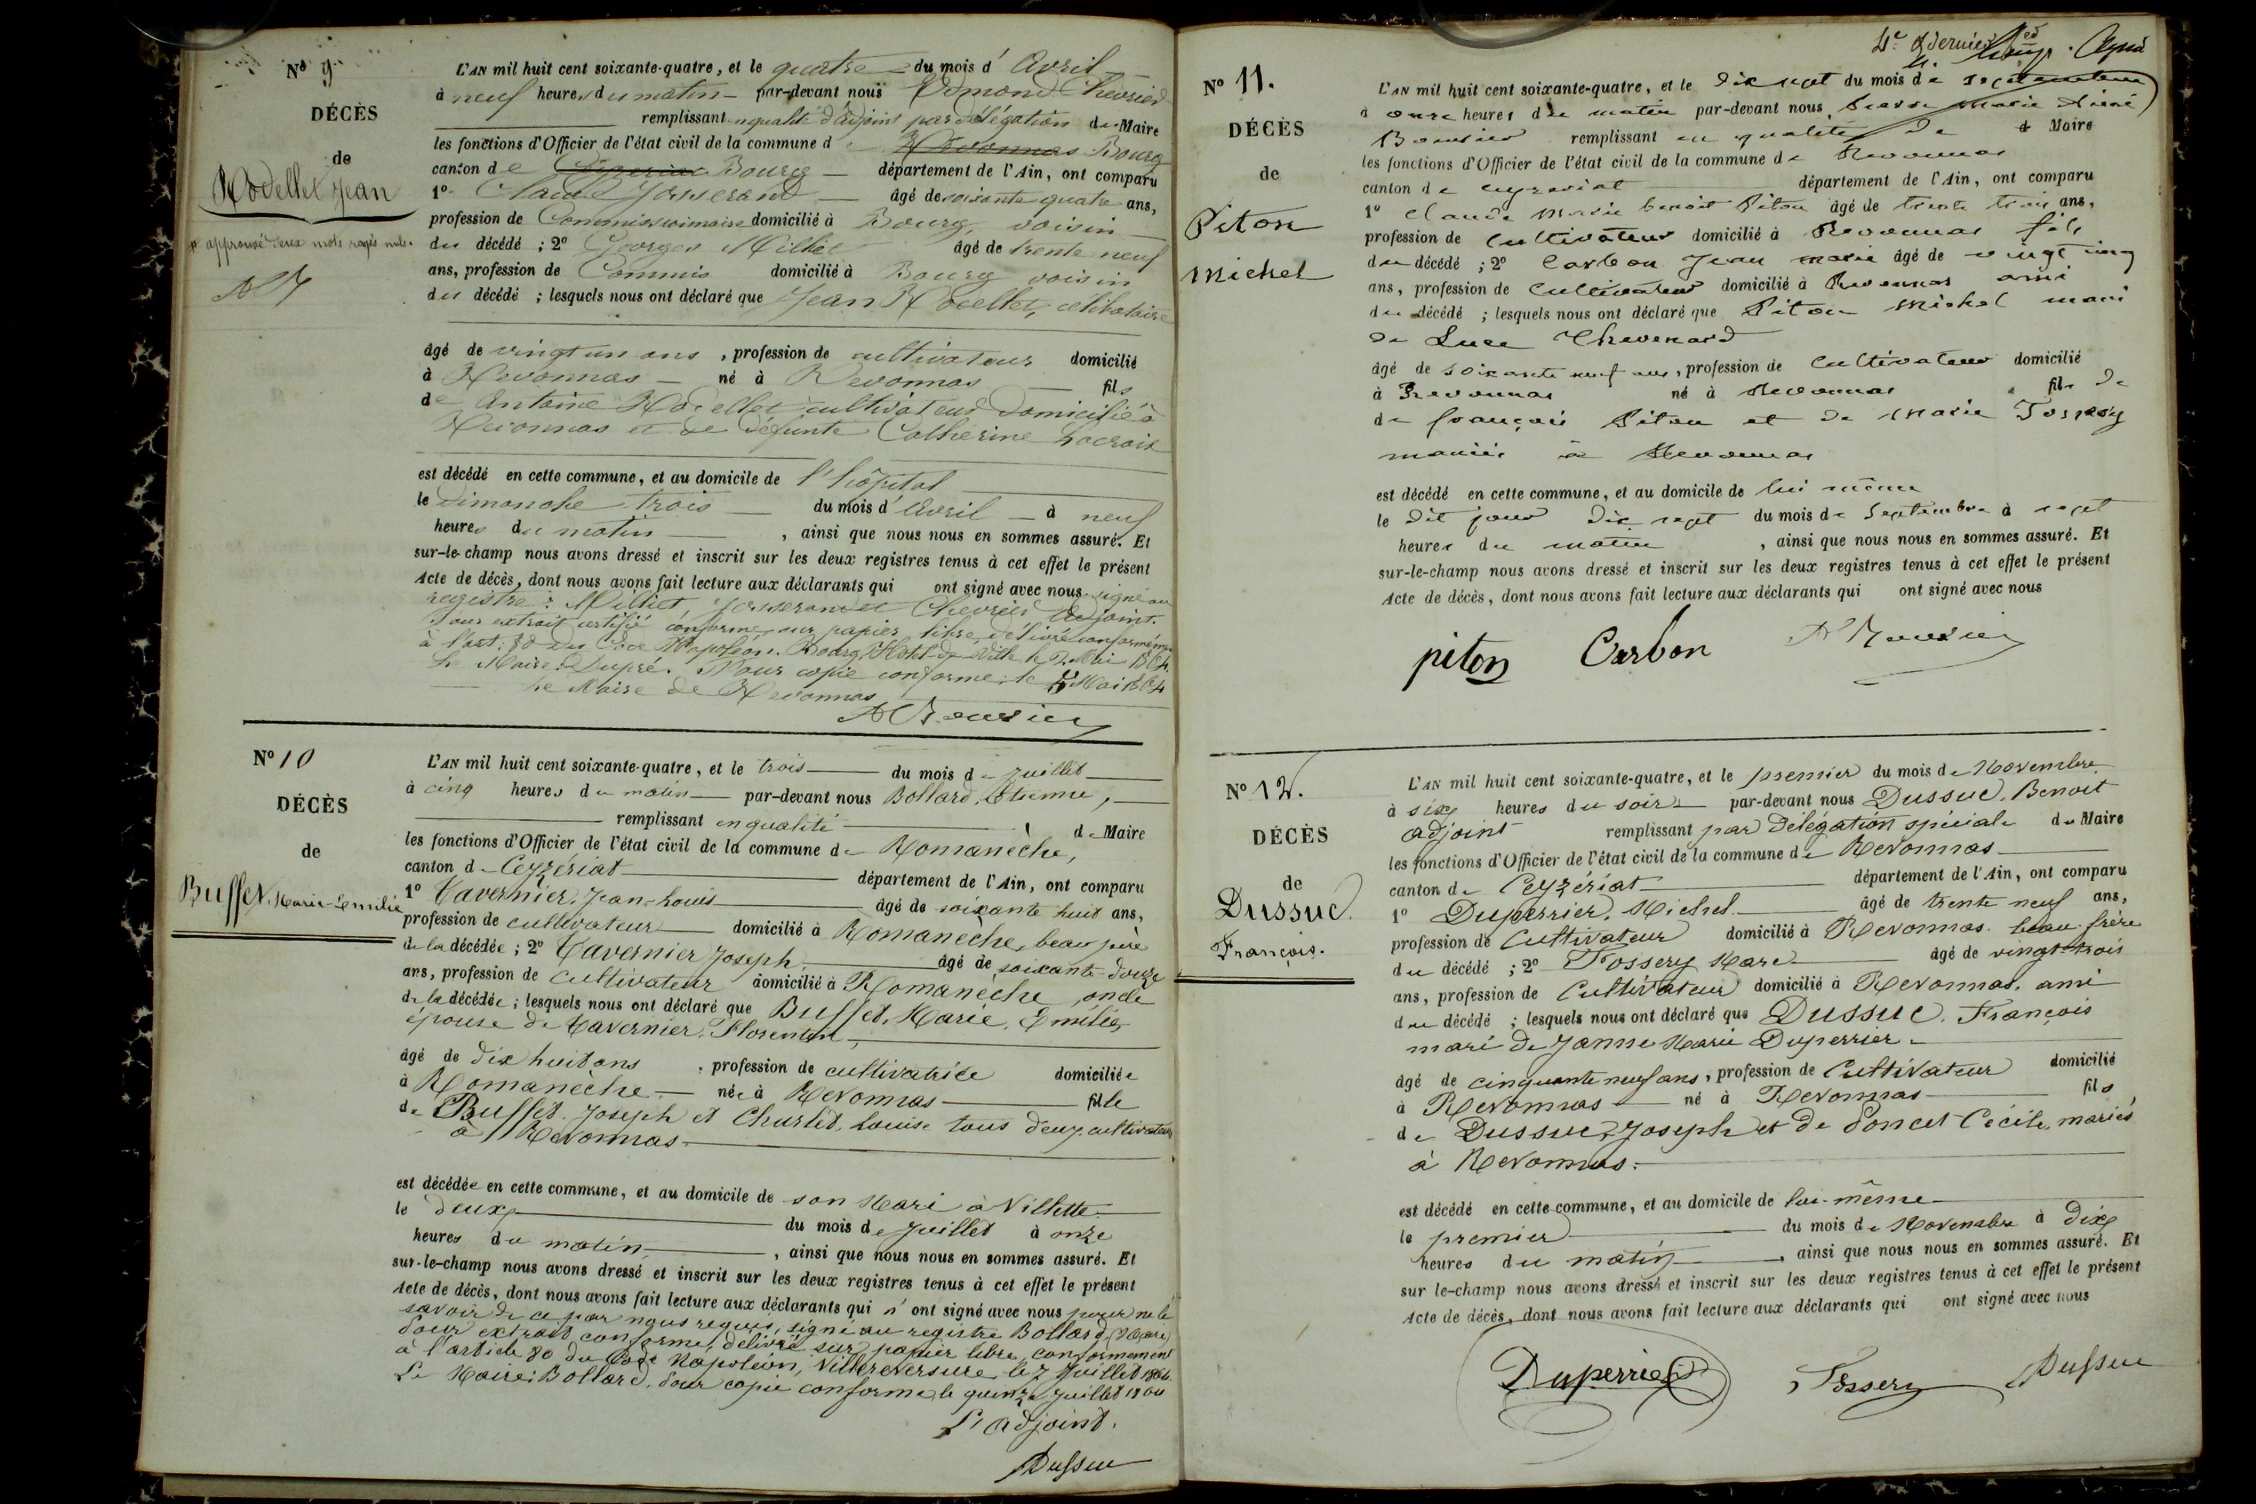 Nº 9
DÉCÈS
de
Rodellet Jean
approuvé deux mots rayés nuls.
L'AN mil huit cent soixante-quatre, et le quatre du mois d'Avril
à neuf heures du matin par-devant nous Edmond Chevrier
remplissant en qualité d'adjoint par délégation du Maire
les fonctions d'Officier de l'état civil de la commune de Revonnas Bourg
canton de Bourg département de l'Ain, ont comparu
1º Claude Josserand âgé de soixante quatre ans,
profession de Commissionnaire domicilié à Bourg, voisin
du décédé ; 2º Georges Milliet âgé de trente neuf
ans, profession de Commis domicilié à Bourg voisin
du décédé ; lesquels nous ont déclaré que Jean Rodellet, célibataire
âgé de vingt un ans, profession de cultivateur domicilié
à Revonnas né à Revonnas fils
de Antoine Rodellet cultivateur domicilié à
Revonnas et de défunte Catherine Lacroix
est décédé en cette commune, et au domicile de l'hôpital
le Dimanche trois du mois d'Avril à neuf
heures du matin, ainsi que nous nous en sommes assuré. Et
sur-le-champ nous avons dressé et inscrit sur les deux registres tenus à cet effet le présent
Acte de décès, dont nous avons fait lecture aux déclarants qui ont signé avec nous signé au
registre : Milliet, Josserand et Chevrier adjoint.
Pour extrait certifié conforme sur papier libre, délivré conformément
à l'art. 80 du Code Napoléon. Bourg, Hôtel de Ville le 2 Mai 1864.
Le Maire: Dupré. Pour copie conforme; le 5 Mai 1864
Le Maire de Revonnas
A Bouvier
Nº 10
DÉCÈS
de
Buffet, Marie-Emilie
L'AN mil huit cent soixante-quatre, et le trois du mois de Juillet
à cinq heures du matin par-devant nous Bollard, Etienne,
remplissant en qualité de Maire
les fonctions d'Officier de l'état civil de la commune de Romanèche,
canton de Ceyzériat département de l'Ain, ont comparu
1º Tavernier, Jean-Louis âgé de soixante huit ans,
profession de cultivateur domicilié à Romanèche, beau père
de la décédée ; 2º Tavernier Joseph, âgé de soixante-douze
ans, profession de cultivateur domicilié à Romanèche, oncle
de la décédée ; lesquels nous ont déclaré que Buffet, Marie, Emilie
épouse de Tavernier, Florentin,
âgé de dix huit ans, profession de cultivatrice domiciliée
à Romanèche née à Revonnas fille
de Buffet Joseph et Charlet, Louise tous deux cultivateurs
à Revonnas.
est décédée en cette commune, et au domicile de son Mari à Villette
le deux du mois de Juillet à onze
heures du matin, ainsi que nous nous en sommes assuré. Et
sur-le-champ nous avons dressé et inscrit sur les deux registres tenus à cet effet le présent
Acte de décès, dont nous avons fait lecture aux déclarants qui n'ont signé avec nous pour ne le
savoir de ce par nous requis, signé au registre Bollard, (Maire)
Pour extrait conforme, délivré sur papier libre, conformément
à l'article 80 du Code Napoléon, Villereversure le 7 Juillet 1864.
Le Maire: Bollard. Pour copie conforme, le quinze Juillet 1864
L'adjoint.
Dussuc
4e & dernier
Nº 11.
DÉCÈS
de
Piton
Michel
L'AN mil huit cent soixante-quatre, et le dix sept du mois de septembre
à onze heures du matin par-devant nous Marie Aimé
Bouvier remplissant en qualité de Maire
les fonctions d'Officier de l'état civil de la commune de Revonnas
canton de ceyzeriat département de l'Ain, ont comparu
1º Claude Marie benoit Piton âgé de trente trois ans,
profession de Cultivateur domicilié à Revonnas fils
du décédé ; 2º Carbon Jean marie âgé de vingt cinq
ans, profession de Cultivateur domicilié à Revonnas ami
du décédé ; lesquels nous ont déclaré que Piton Michel mari
de Luce Thevenard
âgé de soixante neuf ans, profession de Cultivateur domicilié
à Revonnas né à Revonnas fils de
de françois Piton et de Marie Tossery
mariés à Revonnas
est décédé en cette commune, et au domicile de lui même
le dit jour dix sept du mois de Septembre à sept
heures du matin, ainsi que nous nous en sommes assuré. Et
sur-le-champ nous avons dressé et inscrit sur les deux registres tenus à cet effet le présent
Acte de décès, dont nous avons fait lecture aux déclarants qui ont signé avec nous
piton Carbon A Bouvier
Nº 12.
DÉCÈS
de
Dussuc.
François.
L'AN mil huit cent soixante-quatre, et le premier du mois de Novembre
à six heures du soir par-devant nous Dussuc, Benoit
adjoint remplissant par délégation spéciale du Maire
les fonctions d'Officier de l'état civil de la commune de Revonnas
canton de Ceyzériat département de l'Ain, ont comparu
1º Duperrier, Michel âgé de trente neuf ans,
profession de Cultivateur domicilié à Revonnas beau-frère
du décédé ; 2º Tossery Marc âgé de vingt-trois
ans, profession de Cultivateur domicilié à Revonnas, ami
du décédé ; lesquels nous ont déclaré que Dussuc, François
mari de Janne Marie Duperrier
âgé de cinquante neuf ans, profession de Cultivateur domicilié
à Revonnas né à Revonnas fils
de Dussuc, Joseph et de Poncet Cécile, mariés
à Revonnas.
est décédé en cette commune, et au domicile de lui-même
le premier du mois de Novembre à dix
heures du matin, ainsi que nous nous en sommes assuré. Et
sur le-champ nous avons dressé et inscrit sur les deux registres tenus à cet effet le présent
Acte de décès, dont nous avons fait lecture aux déclarants qui ont signé avec nous
Duperrier Tossery Dussuc